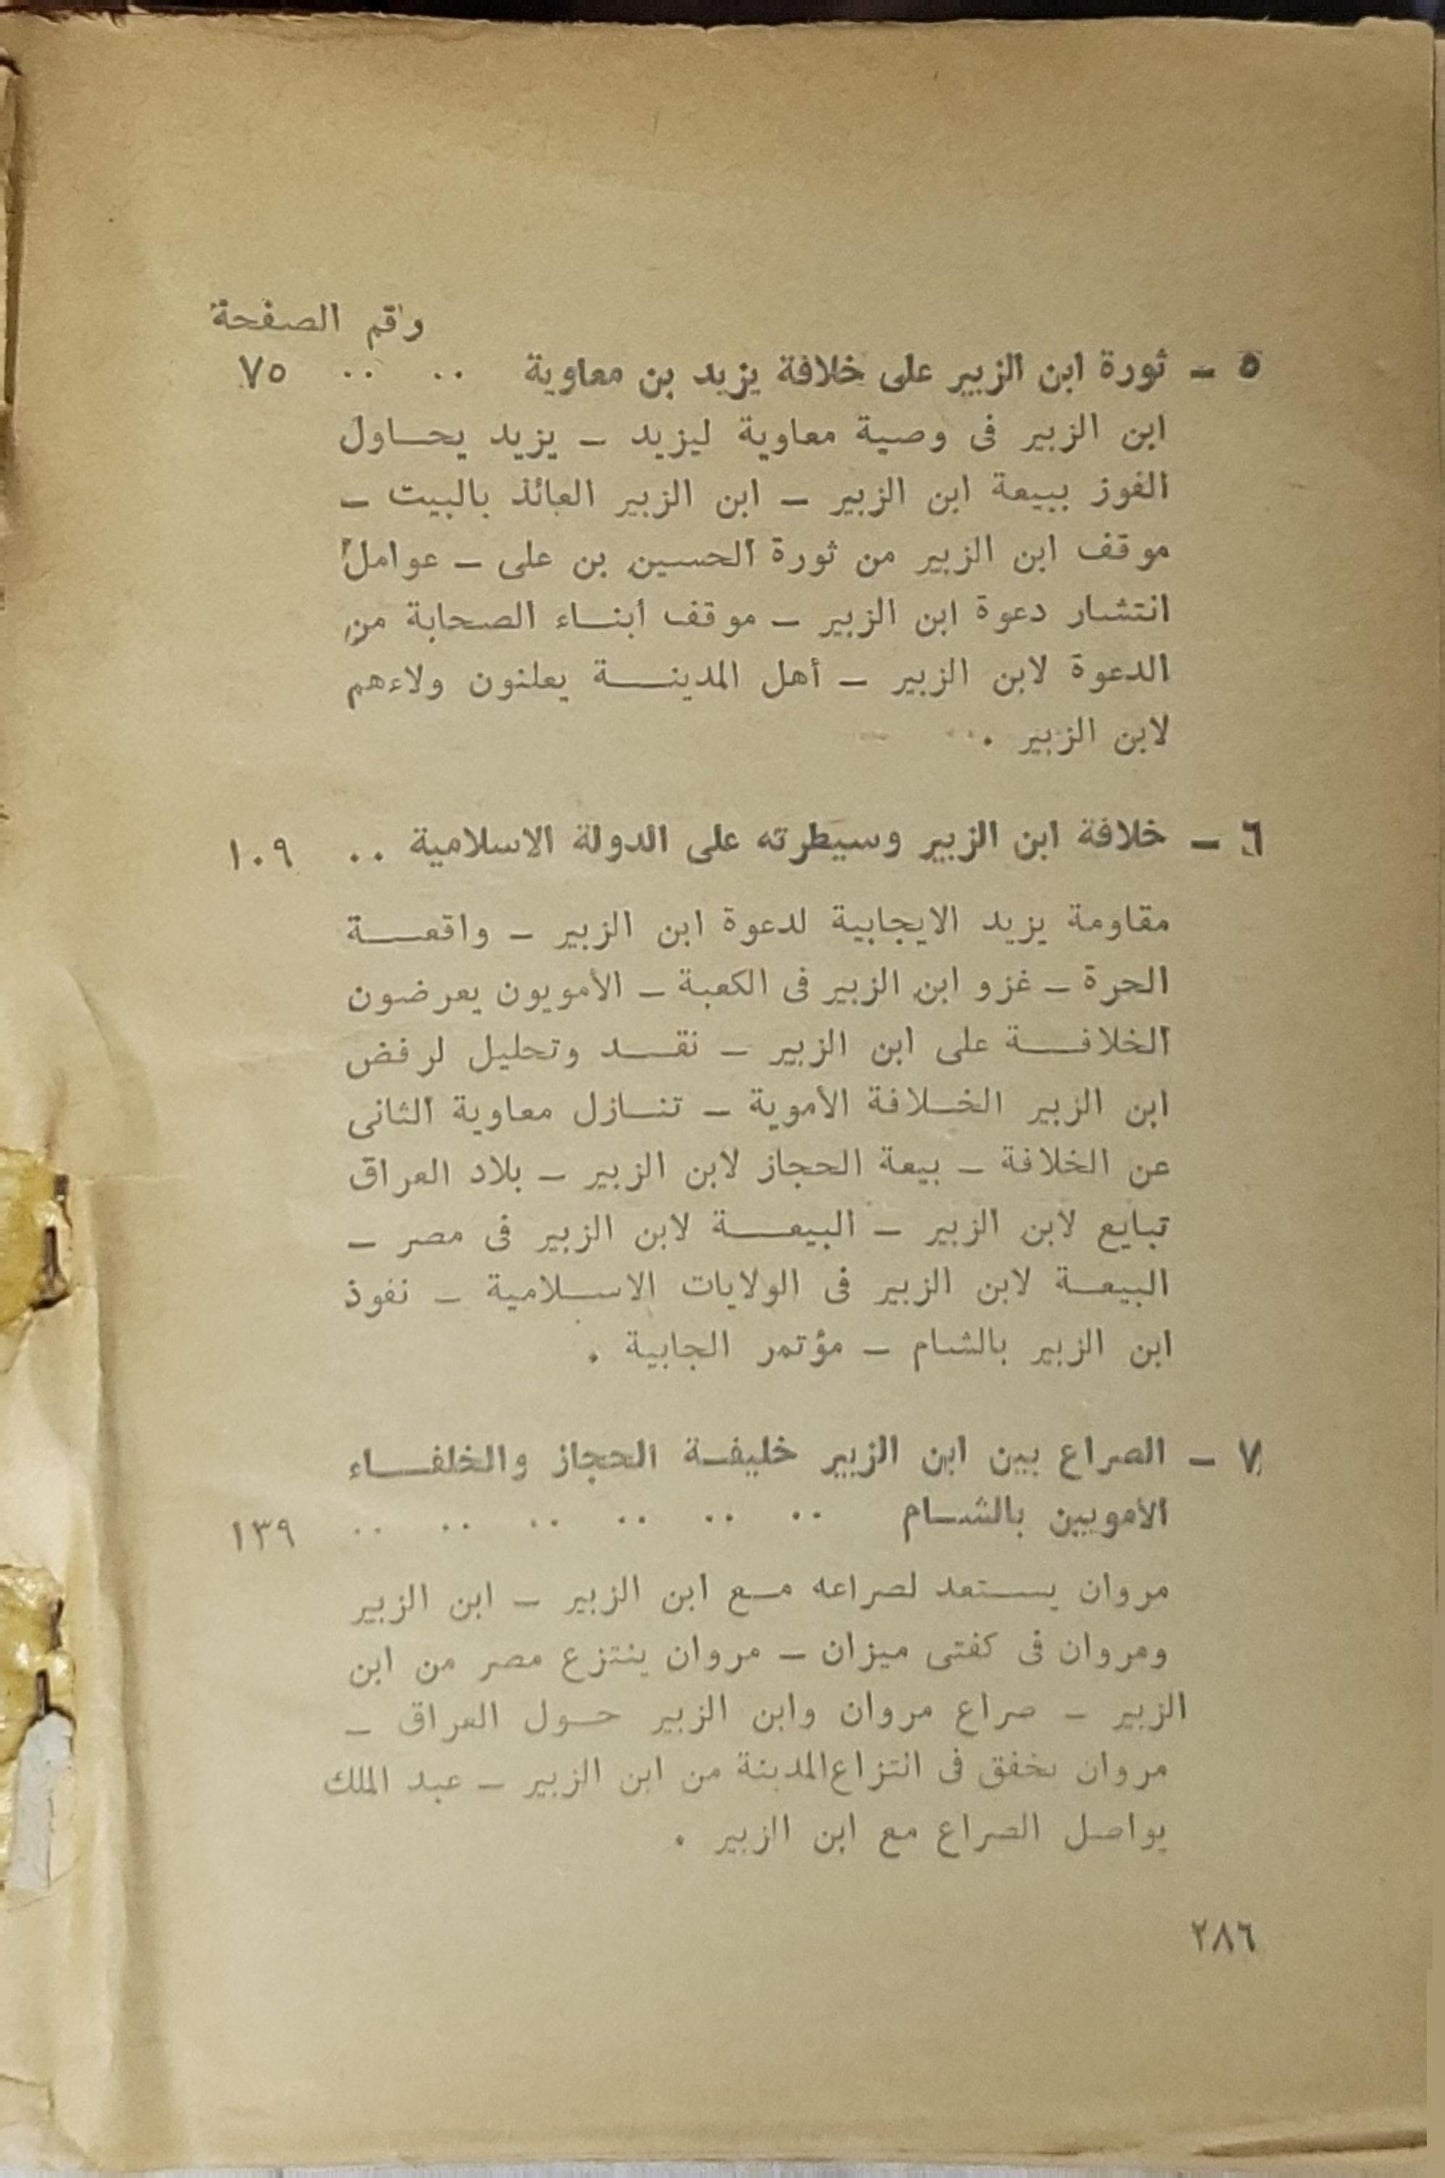 رقم الصفحة
٥ – ثورة ابن الزبير على خلافة يزيد بن معاوية .. .. ٧٥
ابن الزبير فى وصية معاوية ليزيد – يزيد يحاول
الفوز ببيعة ابن الزبير – ابن الزبير العائذ بالبيت –
موقف ابن الزبير من ثورة الحسين بن على – عوامل
انتشار دعوة ابن الزبير – موقف أبناء الصحابة من
الدعوة لابن الزبير – أهل المدينة يعلنون ولاءهم
لابن الزبير .
٦ – خلافة ابن الزبير وسيطرته على الدولة الاسلامية .. ١٠٩
مقاومة يزيد الايجابية لدعوة ابن الزبير – واقعة
الحرة – غزو ابن الزبير فى الكعبة – الأمويون يعرضون
الخلافة على ابن الزبير – نقد وتحليل لرفض
ابن الزبير الخلافة الأموية – تنازل معاوية الثانى
عن الخلافة – بيعة الحجاز لابن الزبير – بلاد العراق
تبايع لابن الزبير – البيعة لابن الزبير فى مصر –
البيعة لابن الزبير فى الولايات الاسلامية – نفوذ
ابن الزبير بالشام – مؤتمر الجابية .
٧ – الصراع بين ابن الزبير خليفة الحجاز والخلفاء
الأمويين بالشام .. .. .. .. .. .. ١٣٩
مروان يستعد لصراعه مع ابن الزبير – ابن الزبير
ومروان فى كفتى ميزان – مروان ينتزع مصر من ابن
الزبير – صراع مروان وابن الزبير حول العراق –
مروان يخفق فى انتزاع المدينة من ابن الزبير – عبد الملك
يواصل الصراع مع ابن الزبير .
٢٨٦